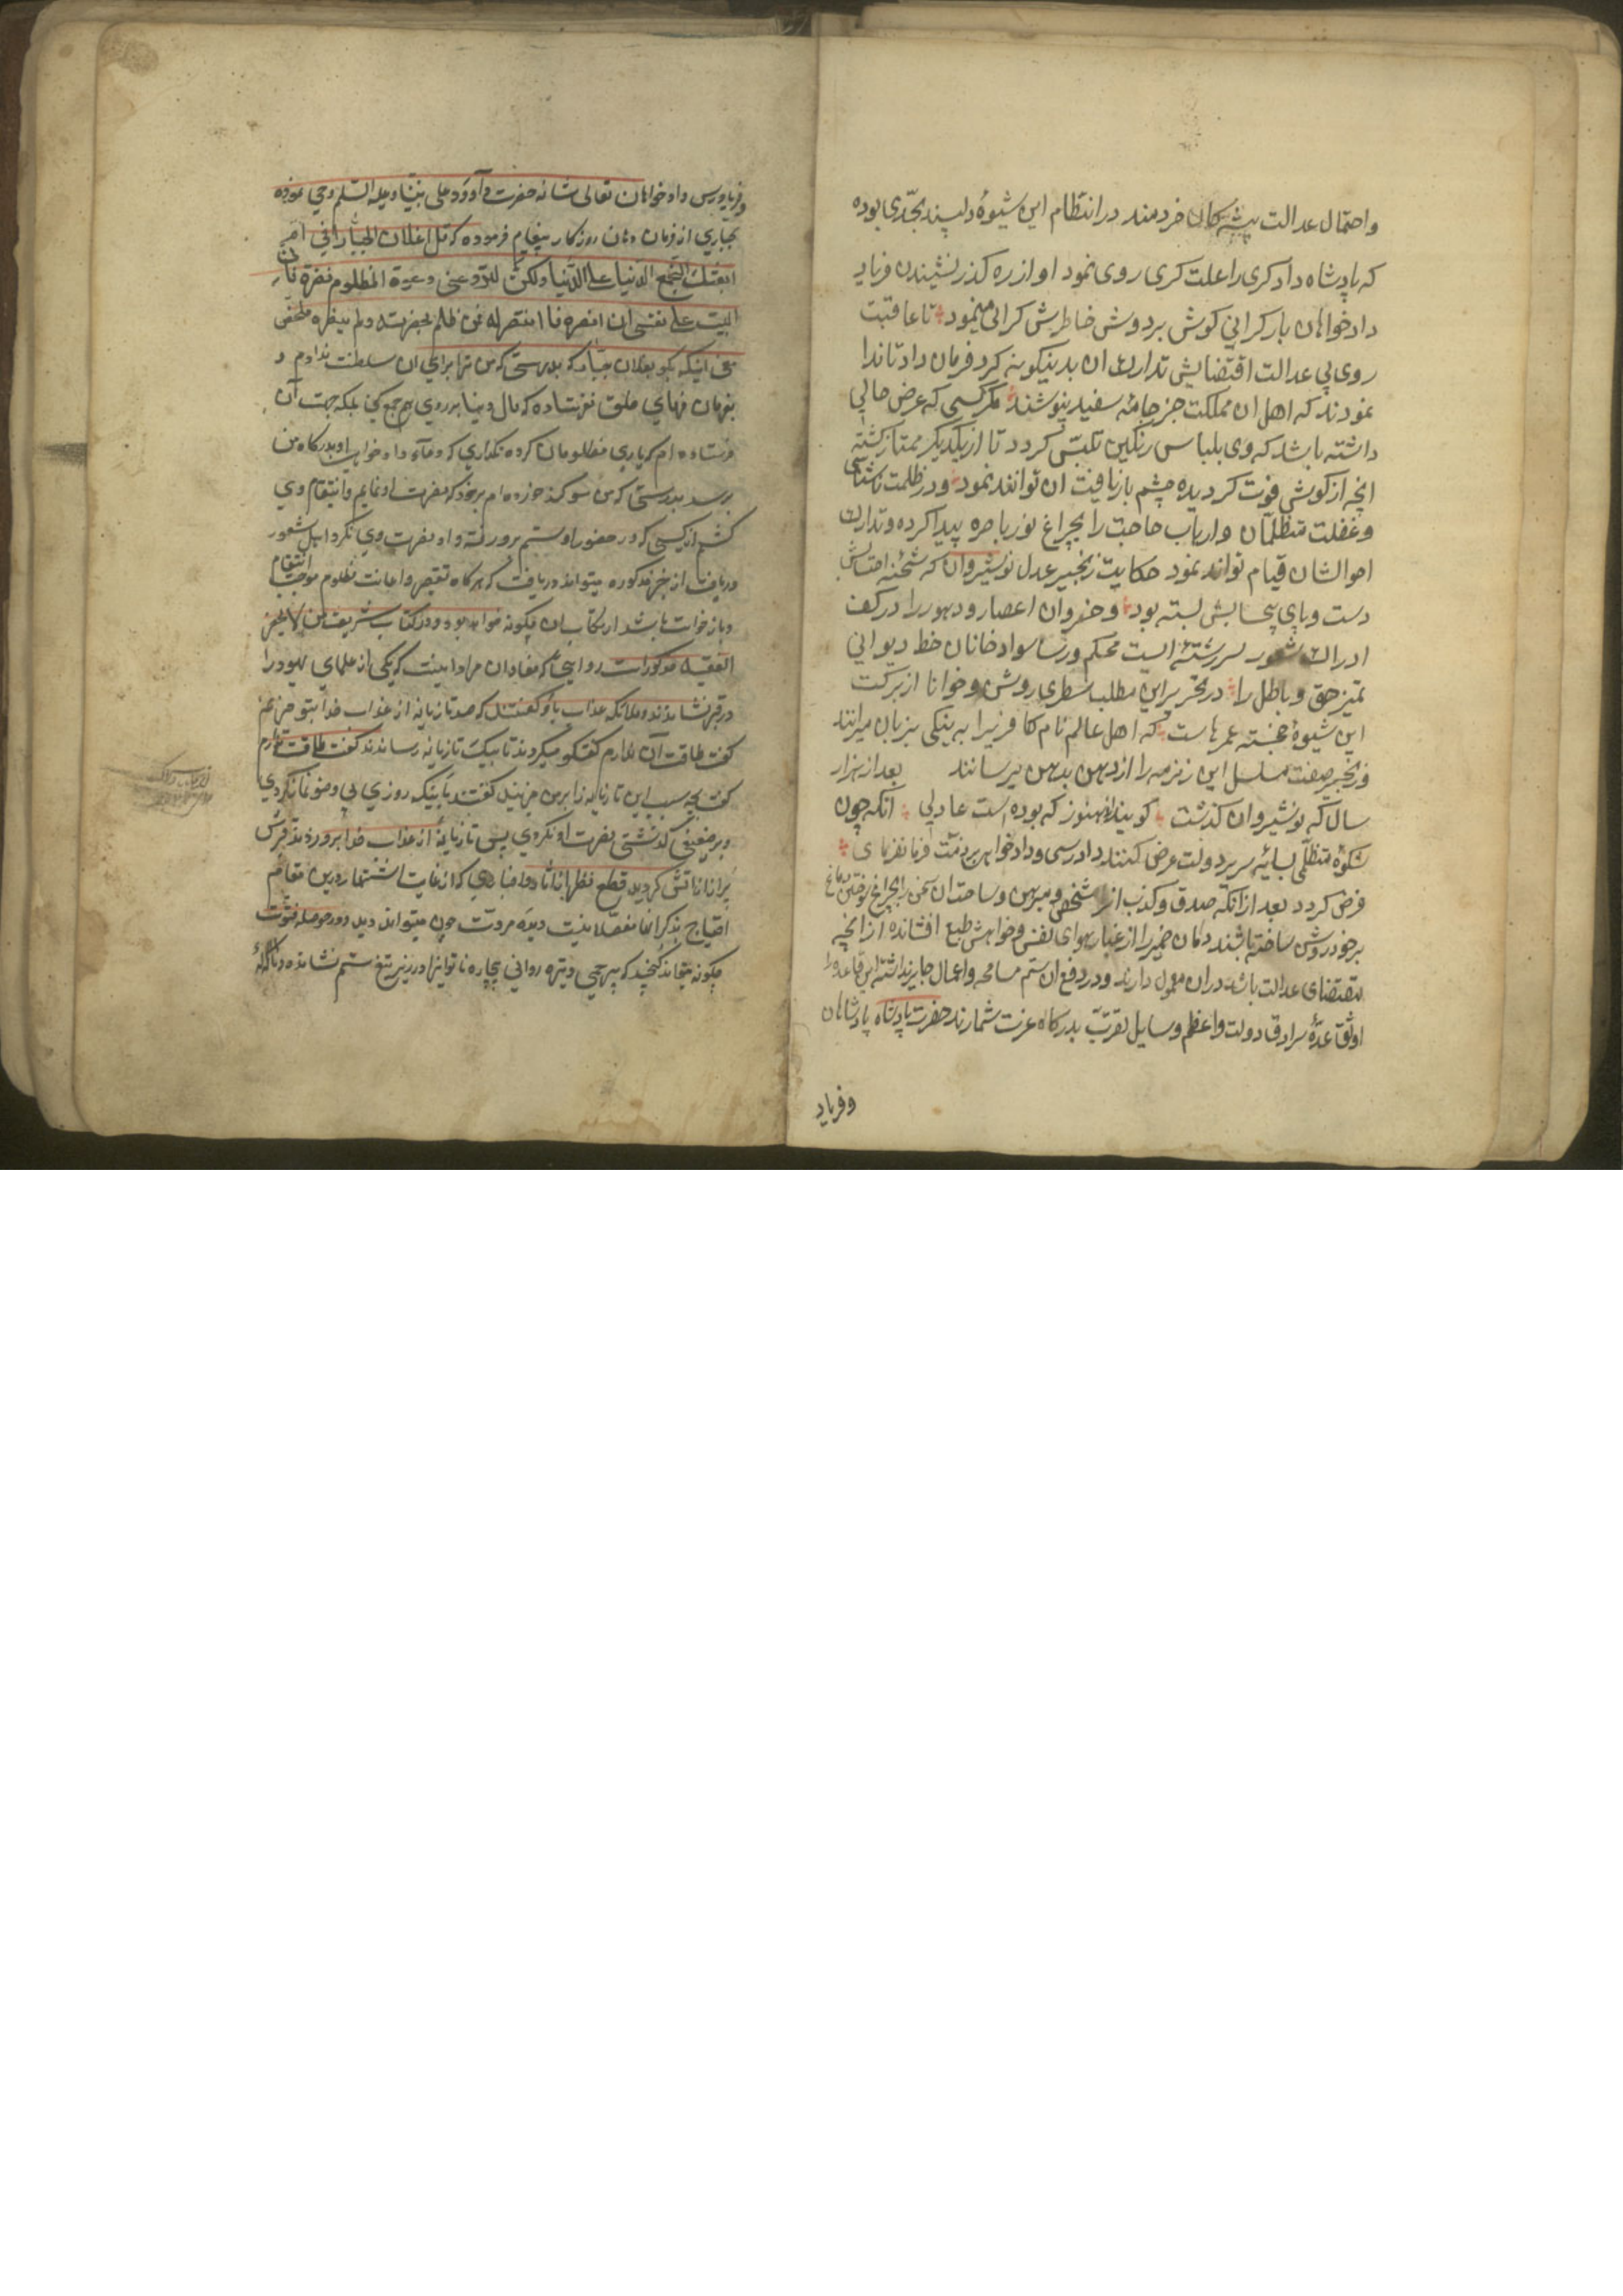 واحتمال عدالت پیشه کان خردمند در انتظام این شیوهٔ دلپسند بجدّی بوده
که پادشاه دادکری را علت کری روی نمود او از ره کذر نشیندن فریاد
دادخواهان بار کرانی کوش بر دوش خاطرش کرانی مینمود تا عاقبت
روی پی عدالت اقتضایش تدارک ان بدینکونه کرد فرمان داد تا ندا
نمودند که اهل ان مملکت جز جامهٔ سفید نپوشند مکر کسی که عرض حالی
داشته باشد که وی بلباس رنکین تلبّس کردد تا از یکدیکر ممتاز کشته
انچه از کوشی فوت کردیده چشم باز یافت ان تواند نمود و در ظلمت ناشناسی
و غفلت متظلمان و ارباب حاجت را بچراغ نور باصره پیدا کرده و تدارک
احوالشان قیام تواند نمود حکایت زنجیر عدل نوشیروان که شحنه احتسابش
دست و پای بسته بود و خسروان اعصار و دهور را در کف
ادراک شعور سررشتهٔ است محکم و رسا سواد خانان خط دیوانی
تمیز حق و باطل را در تحریر این مطلب سطری روشن و خوانا از برکت
این شیوهٔ خجسته عمرهاست که اهل عالم نام کافریرا به نیکی بزبان میرانند
و زنجیر صفت مسلسل این زمزمه را از دهن بدهن میرسانند بعد از هزار
سال که نوشیروان کذشت کویند ازو هنوز که بوده است عادلی انکه چون
شکوهٔ متظلمی بپایه سریر دولت عرض کنند دادرسی و دادخواهی بر ذمّت فرمانفرمای
فرض کردد بعد از انکه صدق و کذب انرا مشخص و مبرهن و ساحت ان را بچراغ
بر خود روشن ساخته باشند دامان ضمیر را از غبار هوای نفس و خواهش طبع افشانده از انچه
مقتضای عدالت باشد در ان معمول دارند و در دفع ان ستم مسامحه و اهمال جایز نداشته این قاعده را
اوثق اعمدهٔ سرادق دولت و اعظم وسایل تقرّب بدرکاه عزت شمارند حضرت پادشاه پادشاهان
و فریاد
و فریادرس دادخواهان تعالی شانه حضرت داوود علی نبینا و علیه السّلم وحی نموده
بجباری از فرمان دهان روزکار پیغام فرموده که قل لفلان الجبّار انی لم
ابعثک لتجمع الدّنیا علی الدّنیا ولکن لتردّ عنی دعوة المظلوم و تنصره فانی
الیت علی نفسی ان انصره و انتصر له ممن ظلم بحضرته و لم ینصره ملخص
معنی اینکه بکو بفلان جبار که بدرستی که من ترا برای ان سلطنت ندادم و
بفرمان فرمای خلق نفرستاده که مال دنیا بر روی هم جمع کنی بلکه جهت آن
فرستاده ام که یاری مظلومان کرده نکذاری که دعاء دادخواهی او بدرکاه من
برسد بدرستی که من سوکند خورده ام بر خود که نصرت او نمایم و انتقام وی
کشم از کسی که در حضور او ستم بر او رفته و او نصرت وی نکرد اهل شعور
دریافت از خبر مذکوره میتواند دریافت که هرکاه تقصیر و اعانت مظلوم موجب انتقام
و بازخواست باشد ارتکاب ان چکونه خواهد بود و در کتاب شریف من لا یحضره
الفقیه مذکور است روایتی که مفاد ان مراد اینست که یکی از علمای یهود را
در قبر نشاندند و ملائکه عذاب باو کفتند که صد تازیانه از عذاب خدا بتو میزنیم
کفت طاقت آن ندارم کفتکو میکردند تا بیک تازیانه رساندند کفت طاقت ندارم
کفت بچه سبب این تازیانه را بر من میزنید کفتند باینکه روزی بی وضو نماز کردی
و بر ضعیفی کذشتی نصرت او نکردی پس تازیانهٔ از عذاب خدا بر او زدند قبرش
پر از آتش کردید قطع نظر از آثار و اخباری که از غایت اشتهار درین مقام
احتیاج بذکر انها مفصلا نیست دیدهٔ مروّت چون میتواند دید و در حوصله فتوّت
چکونه میتواند کنجید که بیرحمی و تیره روانی بیچارهٔ ناتوانرا در زیر تیغ ستم نشانده و ناکاه